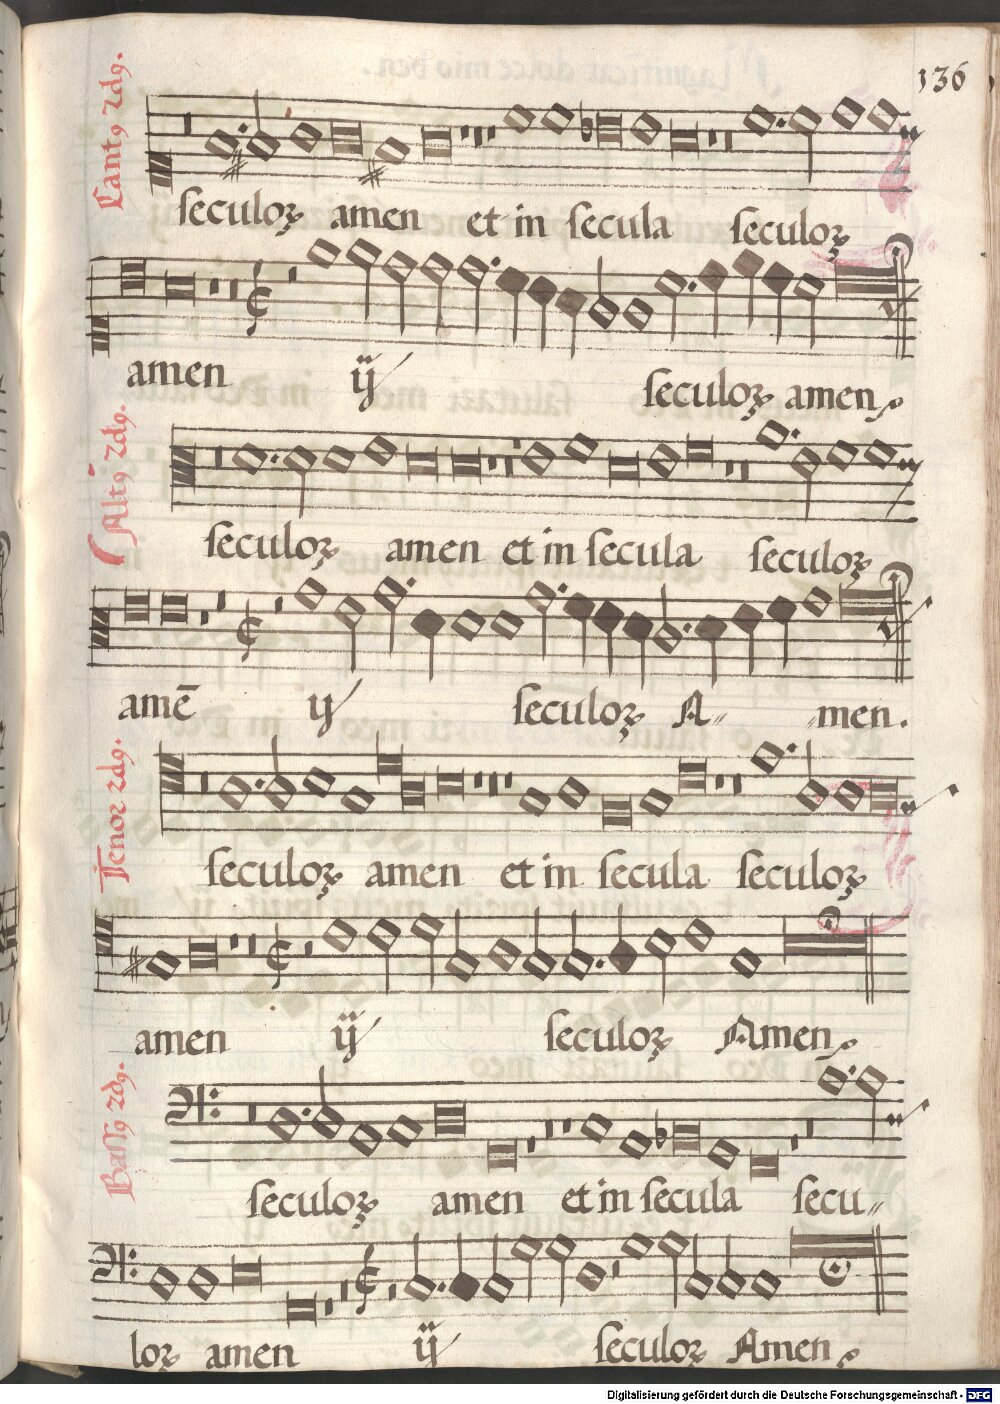 136
Cantꝰ 2dꝰ.
seculoꝝ amen et in secula seculoꝝ
amen ij seculoꝝ amen
Altꝰ 2dꝰ.
seculoꝝ amen et in secula seculoꝝ
amē ij seculoꝝ A- -men.
Tenor 2dꝰ.
seculoꝝ amen et in secula seculoꝝ
amen ij seculoꝝ Amen
Bassꝰ 2dꝰ.
seculoꝝ amen et in secula secu-
loꝝ amen ij seculoꝝ Amen
Digitalisierung gefördert durch die Deutsche Forschungsgemeinschaft - DFG